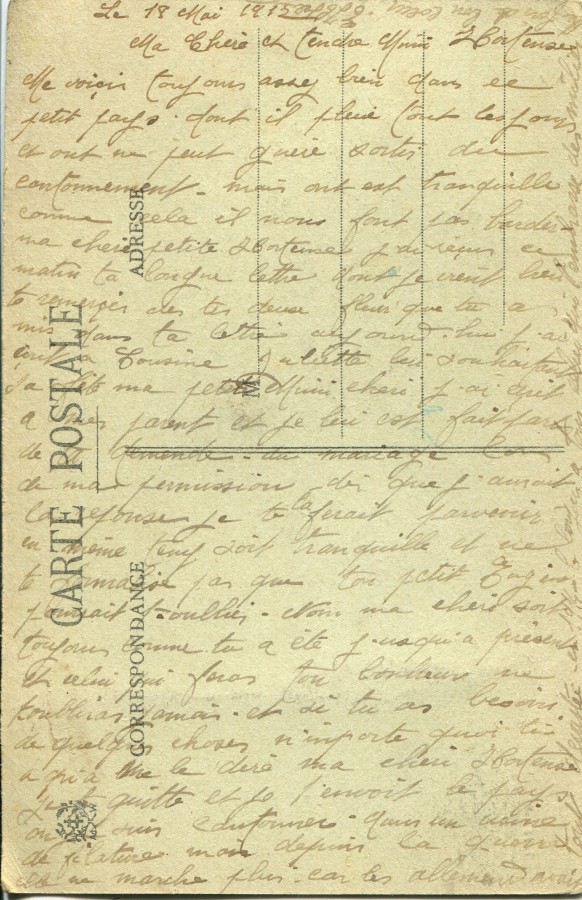 Le 18 Mai 1915
Ma Chère et tendre Mimi Hortense
Me voiçir toujours assez bien dans ce
petit pays. dont il pleut tout les jours
et ont ne peut guère sortir du
cantonnement - mais ont est tranquille
comme cela il nous font pas barder
ma cheri petite Hortense j'ai reçus ce
matin ta longue lettre dont je vient bien
te remerçié des tes deux fleurs que tu a
mis dans ta lettre aujourd-hui j-ai
écrit a Cousine Juliette lui souhaitant
Sa fête ma petite Mimi cheri j-ai écrit
a mes parent et je lui est fait part
de ta demande - du mariage lors
de ma permission dès que j-aurait
la réponse je te la ferait parvenir
en même temp soit tranquille et ne
te tourmaise pas que ton petit Eugène
pourrait t-oublier - Non ma cheri soit
toujours comme tu a été j-usqu-a présent
et celui qui feras ton bonheur ne
t'oublieras jamais - et si tu as besoin
de quelque choses n'importe quoi tu
a qu'a me le dire ma cheri Hortense
Je te quitte et je t'envoit le pays
ou je suis cantonner - dans une usine
de filature mais depuis la guerre
elle ne marche plus - car les allemend avait
CARTE POSTALE
CORRESPONDANCE
ADRESSE
M